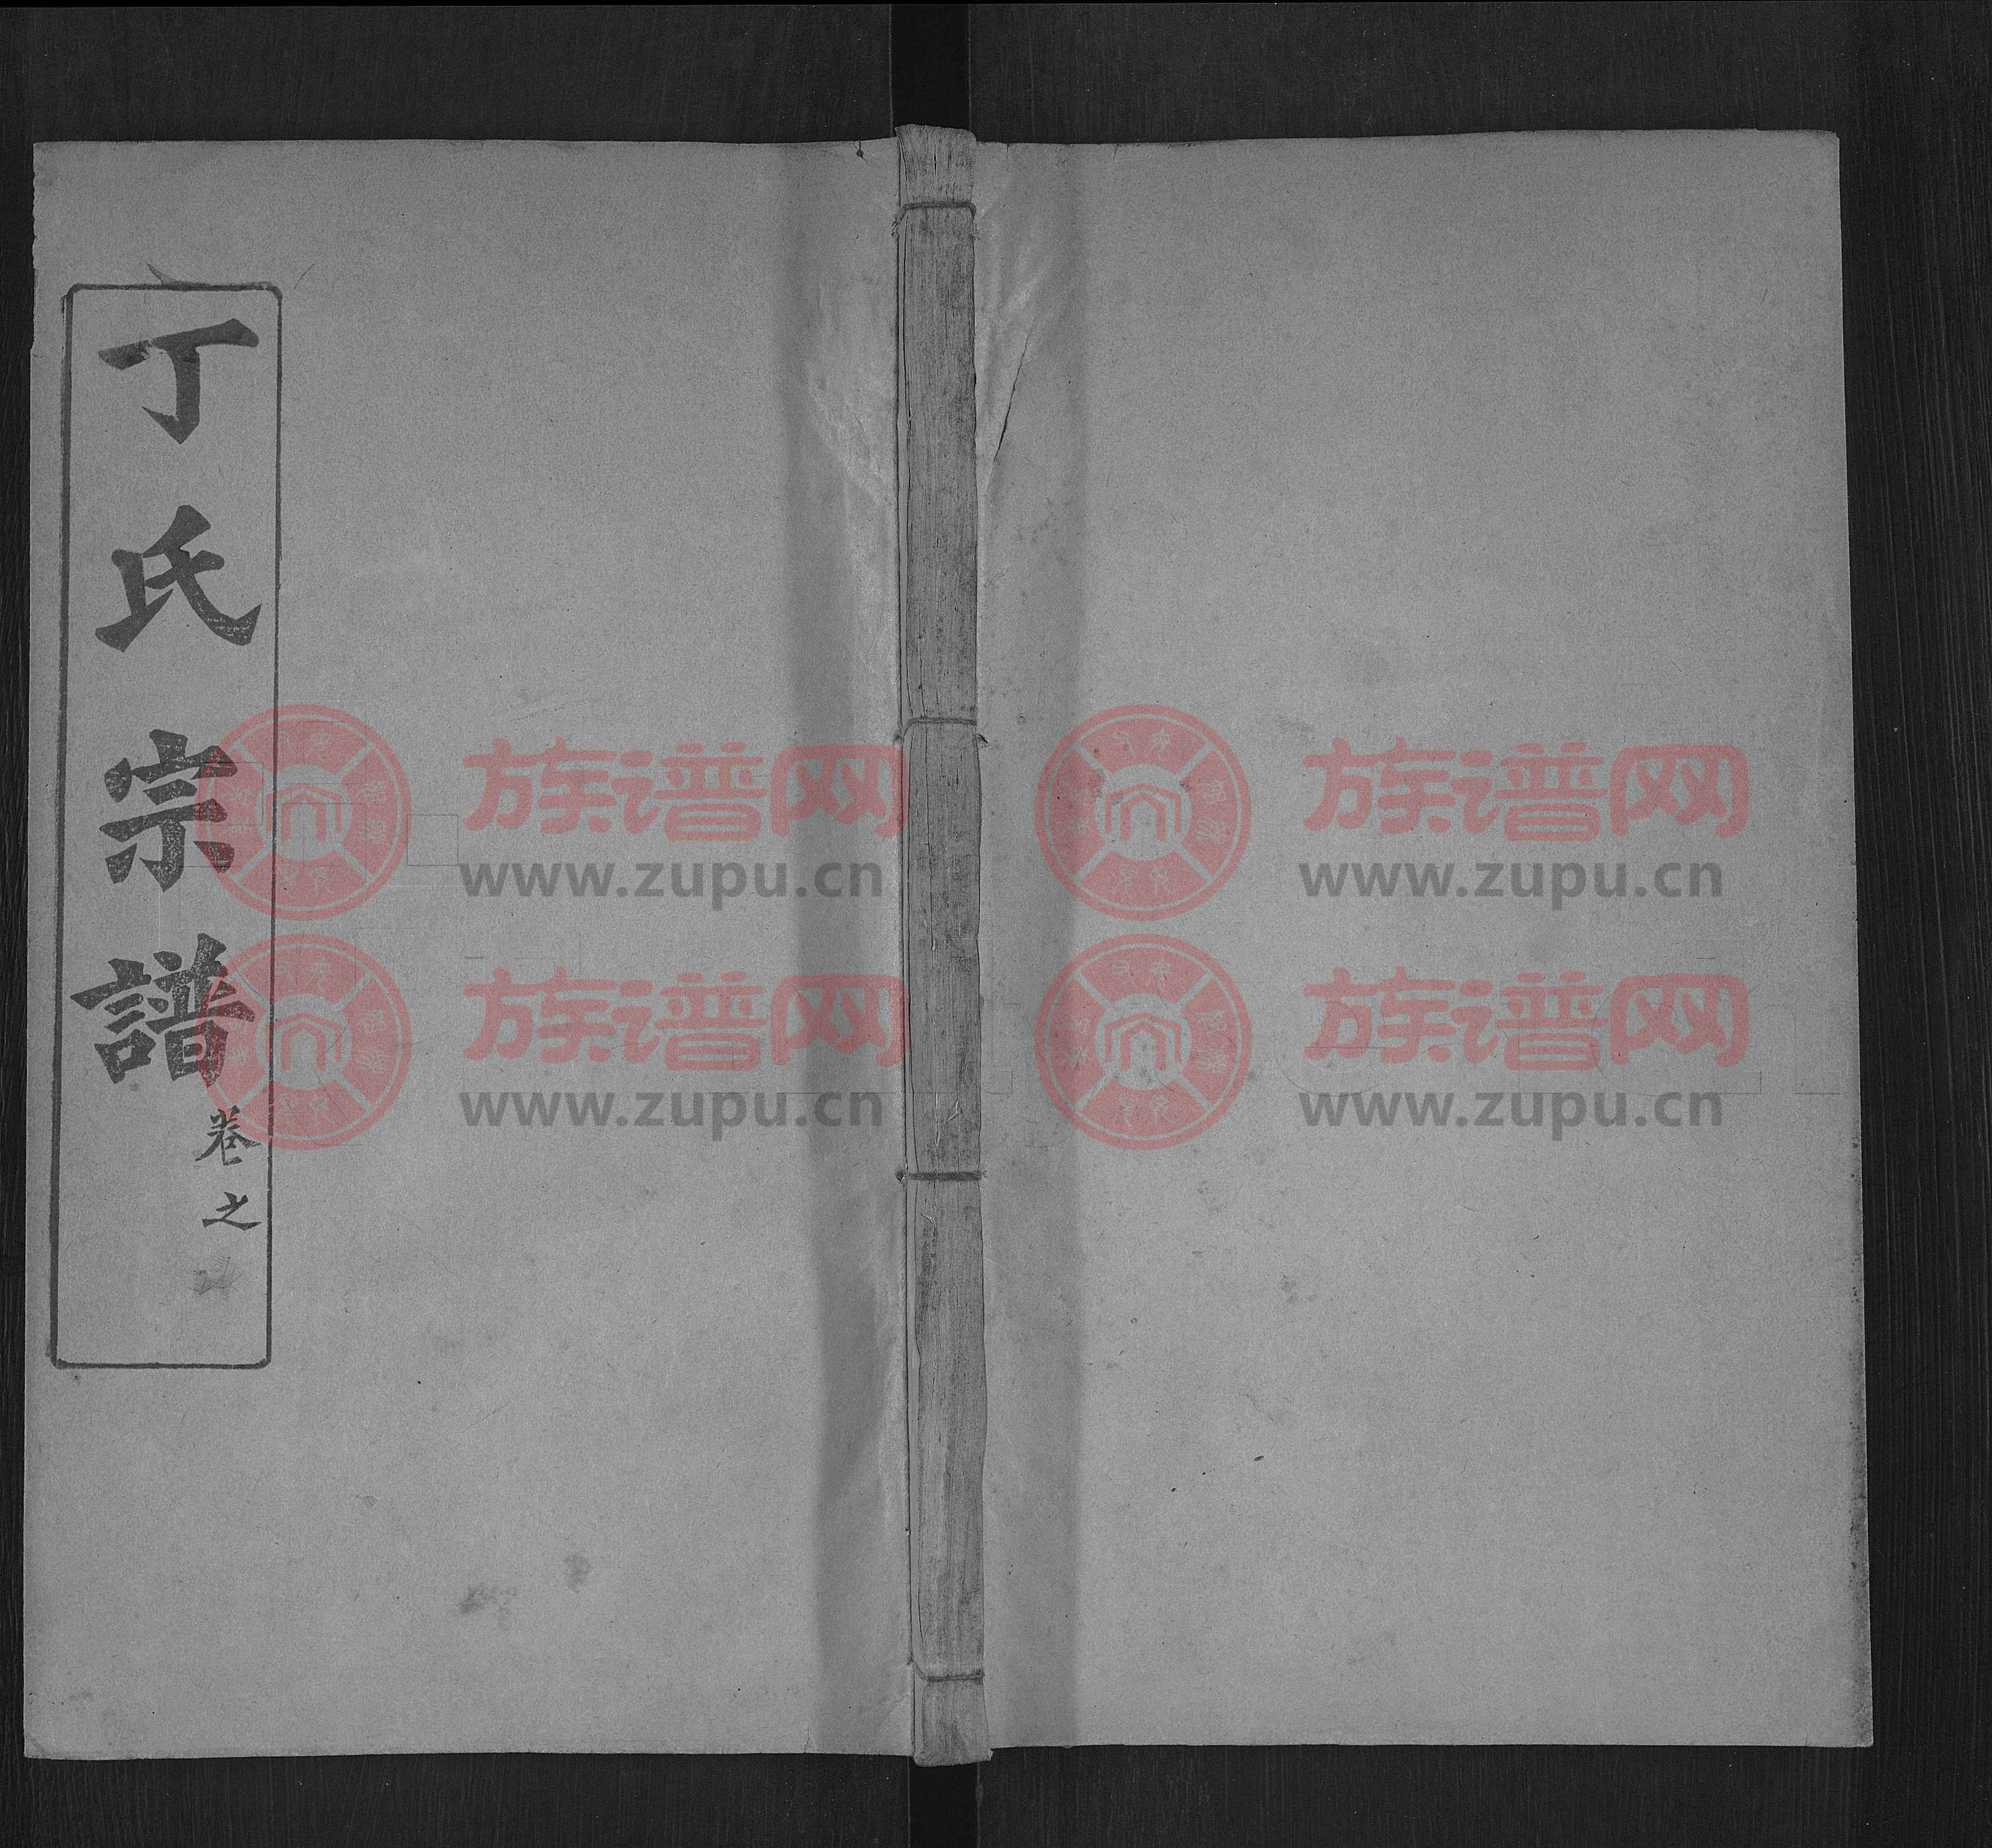 丁氏宗譜
卷之
族谱网
www.zupu.cn
族谱网
www.zupu.cn
族谱网
www.zupu.cn
族谱网
www.zupu.cn